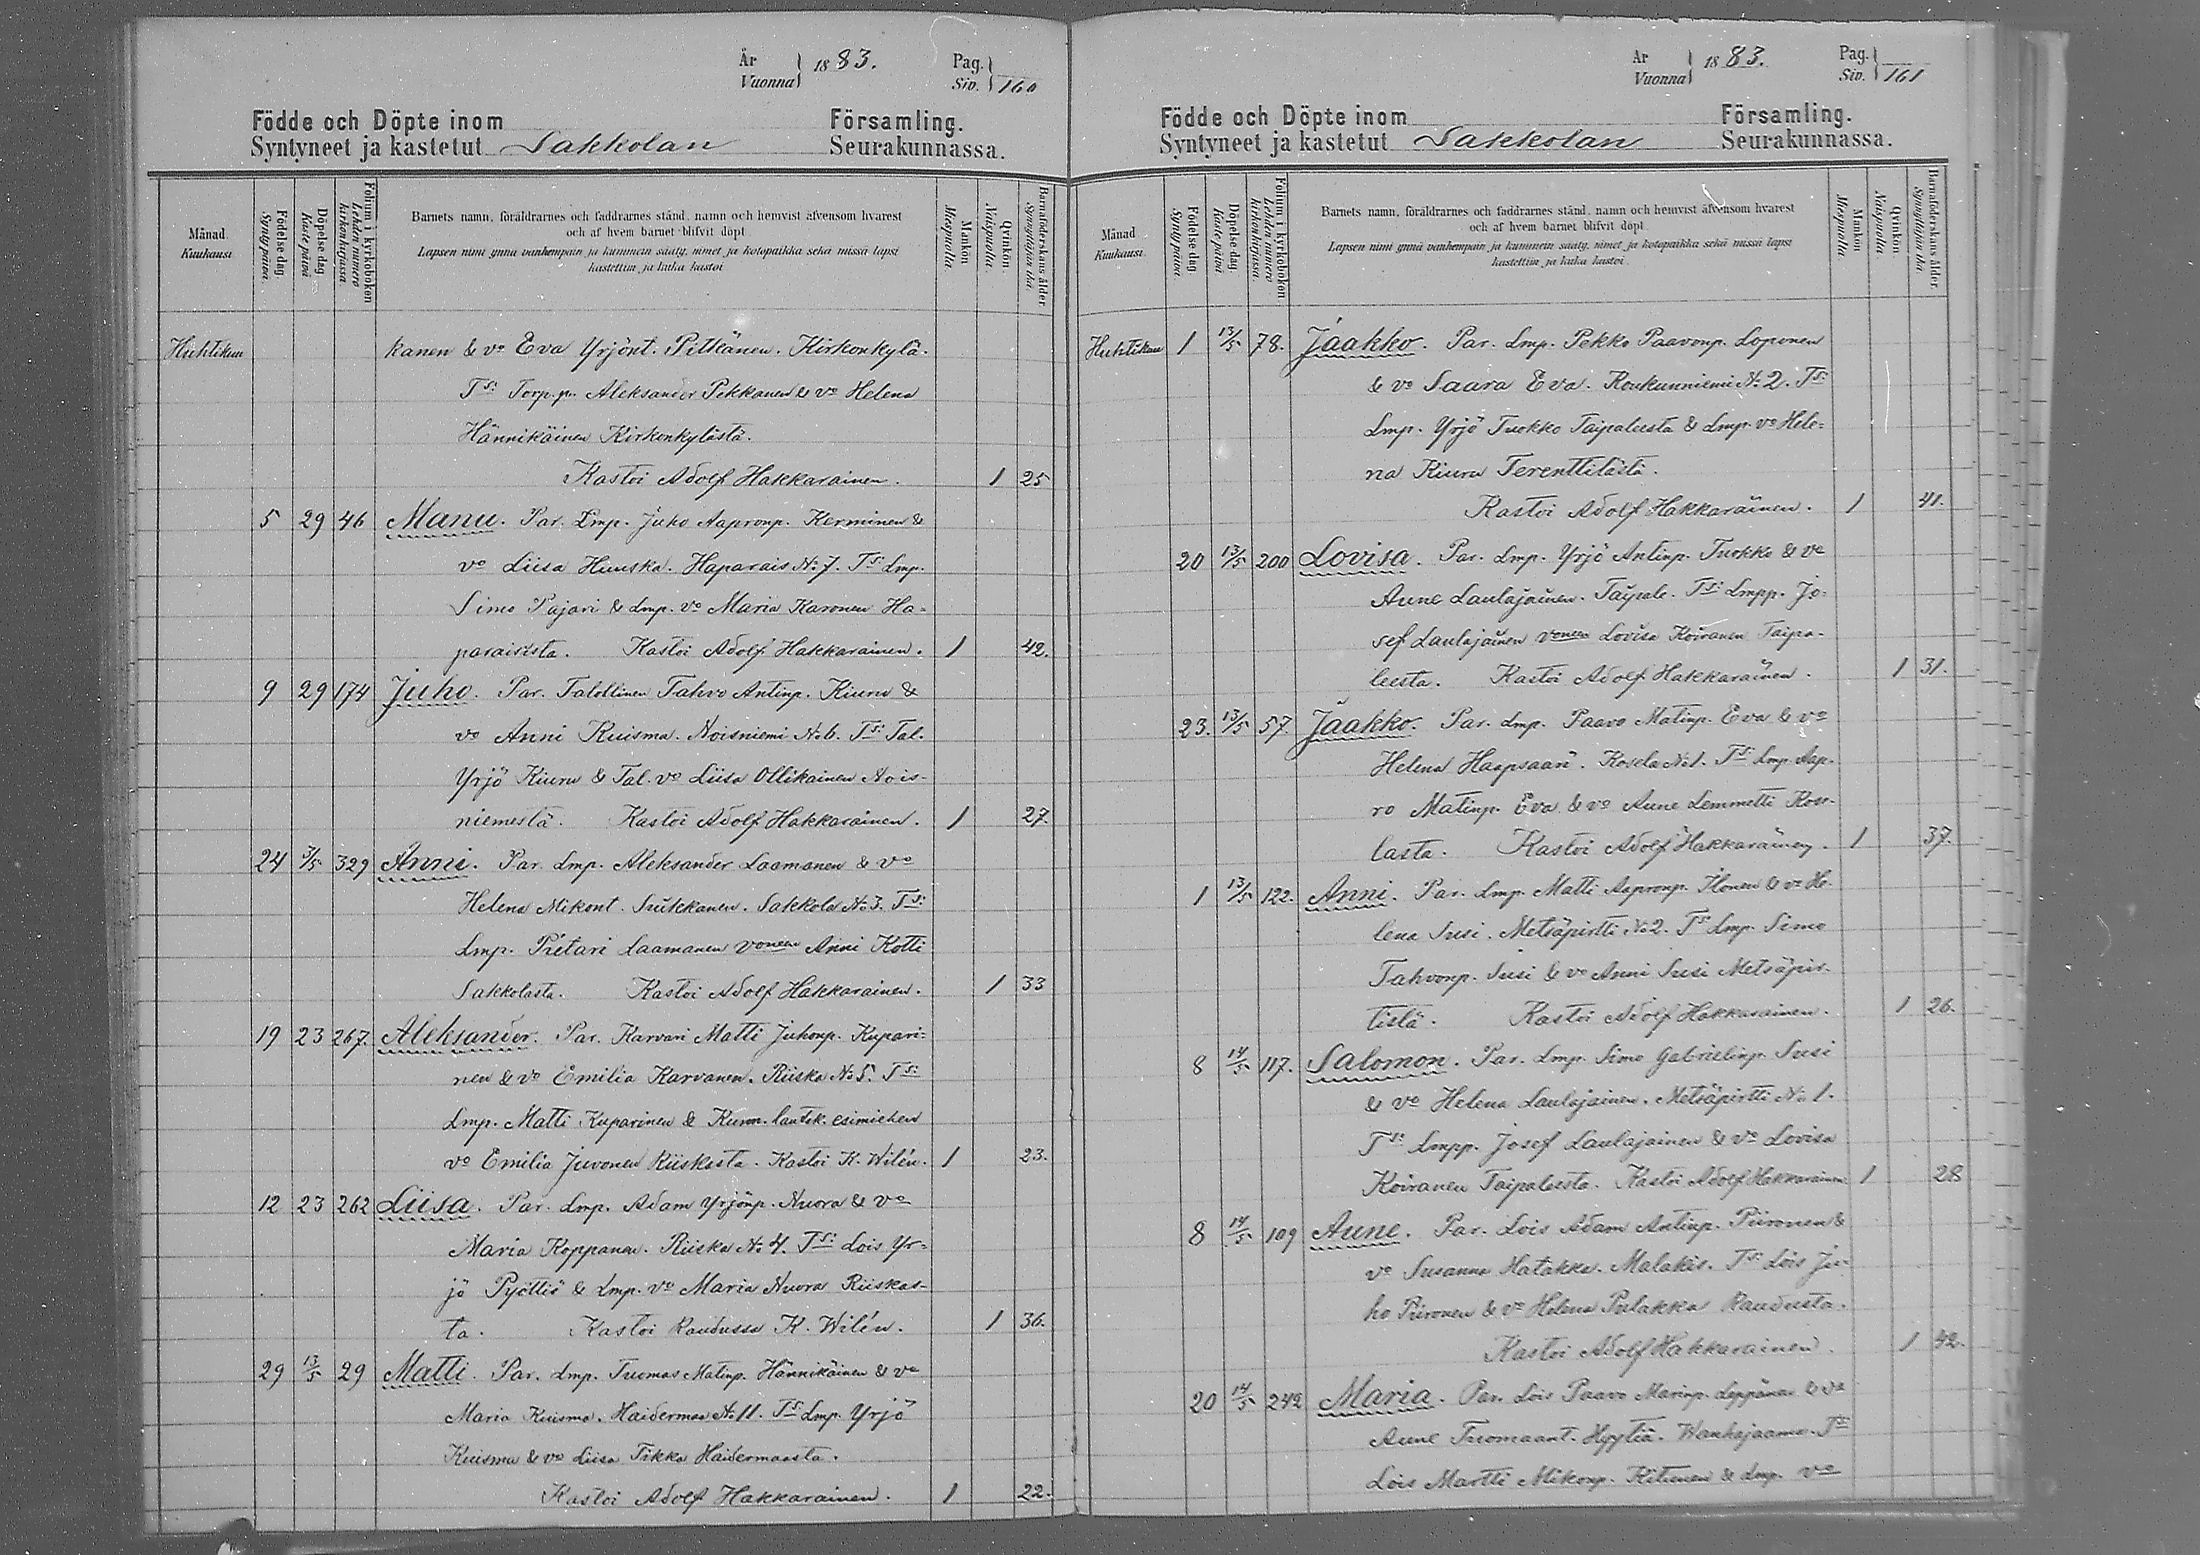 År
Vuonna } 1883.
Pag.
Siv. } 160
Födde och Döpte inom Församling.
Syntyneet ja kastetut Sakkolan Seurakunnassa.
Månad.
Kuukausi.
Födelsedag.
Syntypäivä.
Döpelsedag.
Kastepäivä.
Folium i kyrkoboken
Lehden numero
kirkonkirjassa.
Barnets namn, föräldrarnes och faddrarnes stånd, namn och hemvist äfvensom hvarest
och af hvem barnet blifvit döpt.
Lapsen nimi ynnä vanhempain ja kummein sääty, nimet ja kotopaikka sekä missä lapsi
kastettiin ja kuka kastoi.
Mankön
Miespuolia.
Qvinkön
Naispuolia.
Barnaföderskans ålder.
Synnyttäjän ikä.
Huhtikuu kanen & vo Eva Yrjönt. Pitkänen. Kirkonkylä.
Ts: Torp.p. Aleksander Pekkanen & vo Helena
Hännikäinen Kirkonkylästä.
Kastoi Adolf Hakkarainen. 1 25
5 29 46 Manu. Par. Lmp. Juho Aapronp. Kerminen &
vo Liisa Huuska. Haparais No 7. Ts: Lmp.
Simo Pajari & Lmp. vo Maria Karonen Ha=
paraisista. Kastoi Adolf Hakkarainen. 1 42.
9 29 174 Juho. Par. Talollinen Tahvo Antinp. Kiuru &
vo Anni Ruisma. Noisniemi No 6. Ts: Tal.
Yrjö Kiuru & Tal. vo Liisa Ollikainen Nois-
niemestä. Kastoi Adolf Hakkarainen. 1 27.
24 3/5 329 Anni. Par. Lmp. Aleksander Laamanen & vo
Helena Mikont. Suikkanen. Sakkola No 3. Ts:
Lmp. Pietari Laamanen voneen Anni Kotti
Sakkolasta. Kastoi Adolf Hakkarainen. 1 33
19 23 267. Aleksander. Par. Karvari Matti Juhonp. Kupari-
nen & vo Emilia Karvanen. Riiska No 5. Ts:
Lmp. Matti Kuparinen & Kunn. lautk. esimiehen
vo Emilia Juvonen Riiskasta. Kastoi K. Wilén. 1 23.
12 23 262 Liisa. Par. Lmp. Adam Yrjönp. Nuora & vo
Maria Koppanen. Riiska No 4. Ts: Lois Yr=
jö Pyöttiö & Lmp. vo Maria Nuora Riiskas-
ta. Kastoi Raudussa K. Wilén. 1 36.
29 13/5 29 Matti. Par. Lmp. Tuomas Matinp. Hännikäinen & vo
Maria Kuisma. Haidermaa No 11. Ts: Lmp. Yrjö
Kuisma & vo Liisa Tikka Haidermaasta.
Kastoi Adolf Hakkarainen. 1 22.
År
Vuonna } 1883.
Pag.
Siv. } 161
Födde och Döpte inom Församling.
Syntyneet ja kastetut Sakkolan Seurakunnassa.
Månad
Kuukausi.
Födelsedag
Syntypäivä.
Döpelsedag.
Kastepäivä
Folium i kyrkoboken
Lehden numero
kirkonkirjassa.
Barnets namn, föräldrarnes och faddrarnes stånd, namn och hemvist äfvensom hvarest
och af hvem barnet blifvit döpt.
Lapsen nimi ynnä vanhempain ja kummein sääty, nimet ja kotopaikka sekä missä lapsi
kastettiin ja kuka kastoi.
Mankön
Miespuolia.
Qvinkön
Naispuolia.
Barnaföderskans ålder.
Synnyttäjän ikä
Huhtikuu 1 13/5 78. Jaakko. Par. Lmp. Pekko Paavonp. Loponen
& vo Saara Eva. Koukunniemi No 2. Ts:
Lmp. Yrjö Tuokko Taipaleesta & Lmp. vo Hele=
na Kiuru Terenttilästä.
Kastoi Adolf Hakkarainen. 1 41.
20 13/5 200 Lovisa. Par. Lmp. Yrjö Antinp. Tuokko & vo
Aune Laulajainen. Taipale. Ts: Lmpp. Jo-
sef Laulajainen voneen Lovisa Koiranen Taipa-
leesta. Kastoi Adolf Hakkarainen. 1 31.
23. 13/5 57. Jaakko. Par. Lmp. Paavo Matinp. Eva & vo
Helena Haapsaari. Kosela No 1. Ts: Lmp. Aap-
ro Matinp. Eva & vo Aune Lemmetti Kose-
lasta. Kastoi Adolf Hakkarainen. 1 37.
1 13/5 122. Anni. Par. Lmp. Matti Aapronp. Ilonen & vo He-
lena Susi. Metsäpirtti No 2. Ts: Lmp. Simo
Tahvonp. Susi & vo Anni Susi Metsäpir-
tistä. Kastoi Adolf Hakkarainen. 1 26.
8 14/5 117. Salomon. Par. Lmp. Simo Gabrielinp. Susi
& vo Helena Laulajainen. Metsäpirtti No 1.
Ts: Lmpp. Josef Laulajainen & vo Lovisa
Koiranen Taipaleesta. Kastoi Adolf Hakkarainen 1 28
8 14/5 109 Aune. Par. Lois Adam Antinp. Piironen &
vo Susanna Hatakka. Malakis. Ts: Lois Ju-
ho Piironen & vo Helena Pulakka Raudusta.
Kastoi Adolf Hakkarainen. 1 42.
20 14/5 242 Maria. Par. Lois Paavo Marinp. Leppänen & vo
Aune Tuomaant. Hyytiä. Wanhajaama. Ts:
Lois Martti Mikonp. Kitunen & Lmp. vo